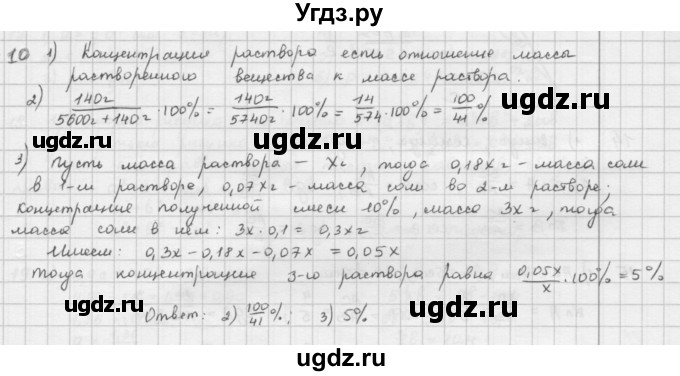 Угдз.ру
10 1) Концентрация раствора есть отношение массы
растворенного вещества к массе раствора.
2) 140г/(5600г+140г) · 100% = 140г/5740г · 100% = 14/574 · 100% = 100/41 %
ugdz.ru ugdz.ru
3) Пусть масса раствора – xг, тогда 0,18xг – масса соли
в 1-м растворе, 0,07xг – масса соли во 2-м растворе;
концентрация полученной смеси 10%, масса 3xг, тогда
масса соли в нем: 3x · 0,1 = 0,3xг
Имеем: 0,3x – 0,18x – 0,07x = 0,05x
тогда концентрация 3-го раствора равна 0,05x/x · 100% = 5%
ugdz.ru ugdz.ru
Ответ: 2) 100/41 %; 3) 5%.
ugdz.ru ugdz.ru